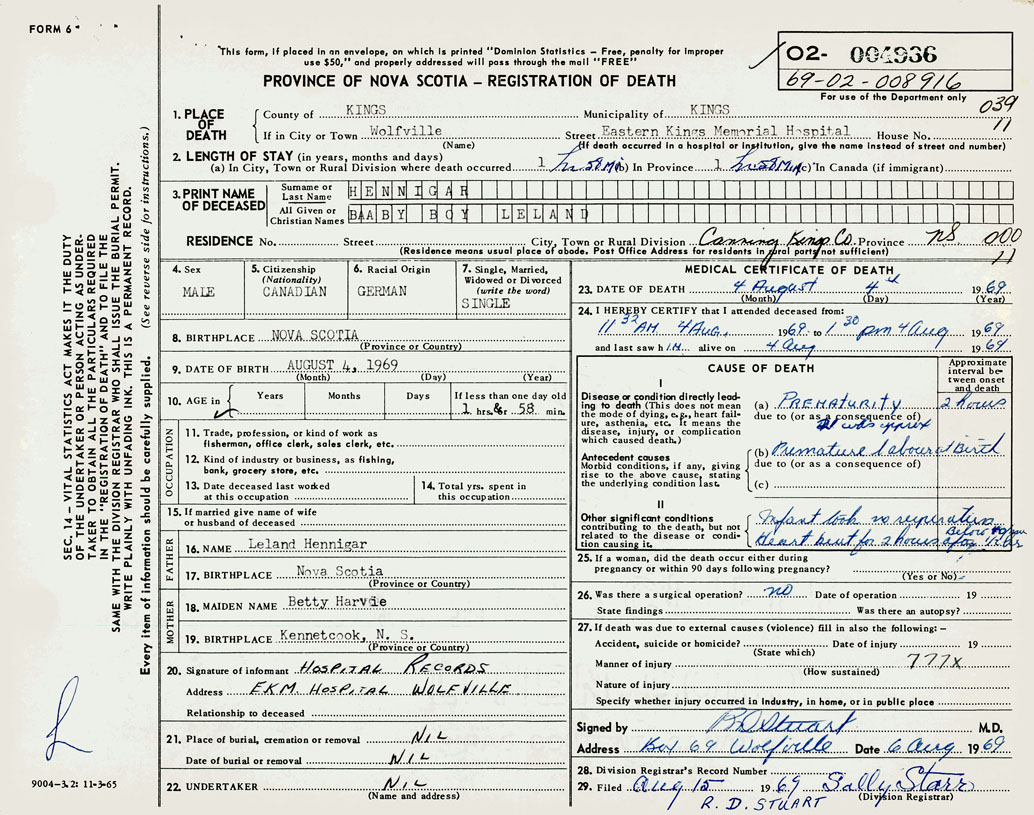 FORM 6
"This form, if placed in an envelope, on which is printed "Dominion Statistics – Free, penalty for improper
use $50," and properly addressed will pass through the mail "FREE"
PROVINCE OF NOVA SCOTIA – REGISTRATION OF DEATH
02- 004936
69-02-008916
For use of the Department only
039
11
1. PLACE OF DEATH
County of KINGS Municipality of KINGS
If in City or Town Wolfville Street Eastern Kings Memorial Hospital House No.
(Name) (If death occurred in a hospital or institution, give the name instead of street and number)
2. LENGTH OF STAY (in years, months and days)
(a) In City, Town or Rural Division where death occurred 1 hr 58 Min (b) In Province 1 hr 58 Min (c) In Canada (if immigrant)
3. PRINT NAME OF DECEASED
Surname or Last Name HENNIGAR
All Given or Christian Names BAABY BOY LELAND
RESIDENCE No. Street City, Town or Rural Division Canning Kings Co. Province NS 000
(Residence means usual place of abode. Post Office Address for residents in rural parts not sufficient) 11
4. Sex MALE
5. Citizenship (Nationality) CANADIAN
6. Racial Origin GERMAN
7. Single, Married, Widowed or Divorced (write the word) SINGLE
8. BIRTHPLACE NOVA SCOTIA
(Province or Country)
9. DATE OF BIRTH AUGUST 4, 1969
(Month) (Day) (Year)
10. AGE in Years Months Days If less than one day old
1 hrs. & 58 min.
OCCUPATION
11. Trade, profession, or kind of work as
fisherman, office clerk, sales clerk, etc.
12. Kind of industry or business, as fishing,
bank, grocery store, etc.
13. Date deceased last worked
at this occupation
14. Total yrs. spent in
this occupation
15. If married give name of wife
or husband of deceased
FATHER
16. NAME Leland Hennigar
17. BIRTHPLACE Nova Scotia
(Province or Country)
MOTHER
18. MAIDEN NAME Betty Harvie
19. BIRTHPLACE Kennetcook, N. S.
(Province or Country)
20. Signature of informant HOSPITAL RECORDS
Address EKM HOSPITAL WOLFVILLE
Relationship to deceased
21. Place of burial, cremation or removal NIL
Date of burial or removal NIL
22. UNDERTAKER NIL
(Name and address)
MEDICAL CERTIFICATE OF DEATH
23. DATE OF DEATH 4 August 4th 1969
(Month) (Day) (Year)
24. I HEREBY CERTIFY that I attended deceased from:
11 32 AM 4 Aug. 1969 to 1 30 pm 4 Aug 1969
and last saw him alive on 4 Aug 1969
CAUSE OF DEATH
Approximate interval between onset and death
I
Disease or condition directly leading to death (This does not mean the mode of dying, e.g., heart failure, asthenia, etc. It means the disease, injury, or complication which caused death.)
(a) PREMATURITY 2 hours
due to (or as a consequence of)
approx
Antecedent causes
Morbid conditions, if any, giving rise to the above cause, stating the underlying condition last.
(b) Premature labour at Birth
due to (or as a consequence of)
(c)
II
Other significant conditions
contributing to the death, but not related to the disease or condition causing it.
Infant took no respirations
Heart beat for 2 hours
25. If a woman, did the death occur either during
pregnancy or within 90 days following pregnancy?
(Yes or No)
26. Was there a surgical operation? no Date of operation 19
State findings Was there an autopsy?
27. If death was due to external causes (violence) fill in also the following: –
Accident, suicide or homicide? Date of injury 19
(State which)
Manner of injury 777X
(How sustained)
Nature of injury
Specify whether injury occurred in industry, in home, or in public place
Signed by RD Stuart M.D.
Address Box 69 Wolfville Date 6 Aug 1969
28. Division Registrar's Record Number
29. Filed Aug 15 1969 Sally Starr
R. D. STUART (Division Registrar)
SEC. 14 – VITAL STATISTICS ACT MAKES IT THE DUTY
OF THE UNDERTAKER OR PERSON ACTING AS UNDER-
TAKER TO OBTAIN ALL THE PARTICULARS REQUIRED
IN THE "REGISTRATION OF DEATH" AND TO FILE THE
SAME WITH THE DIVISION REGISTRAR WHO SHALL ISSUE THE BURIAL PERMIT.
WRITE PLAINLY WITH UNFADING INK. THIS IS A PERMANENT RECORD.
Every item of information should be carefully supplied. (See reverse side for instructions.)
9004-3.2: 11-3-65